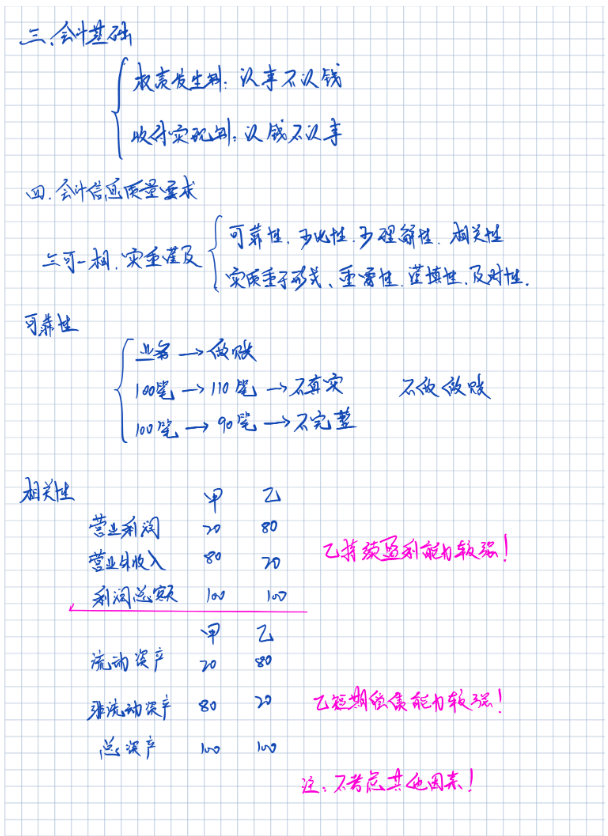 三、会计基础
权责发生制：认事不认钱
收付实现制：认钱不认事
四、会计信息质量要求
三可一相，实重谨及
可靠性、可比性、可理解性、相关性
实质重于形式、重要性、谨慎性、及时性.
可靠性
业务→做账
100笔→110笔→不真实 不做假账
100笔→90笔→不完整
相关性 甲 乙
营业利润 20 80
营业外收入 80 20 乙持续盈利能力较强！
利润总额 100 100
甲 乙
流动资产 20 80
非流动资产 80 20 乙短期偿债能力较强！
总资产 100 100
注：不考虑其他因素！